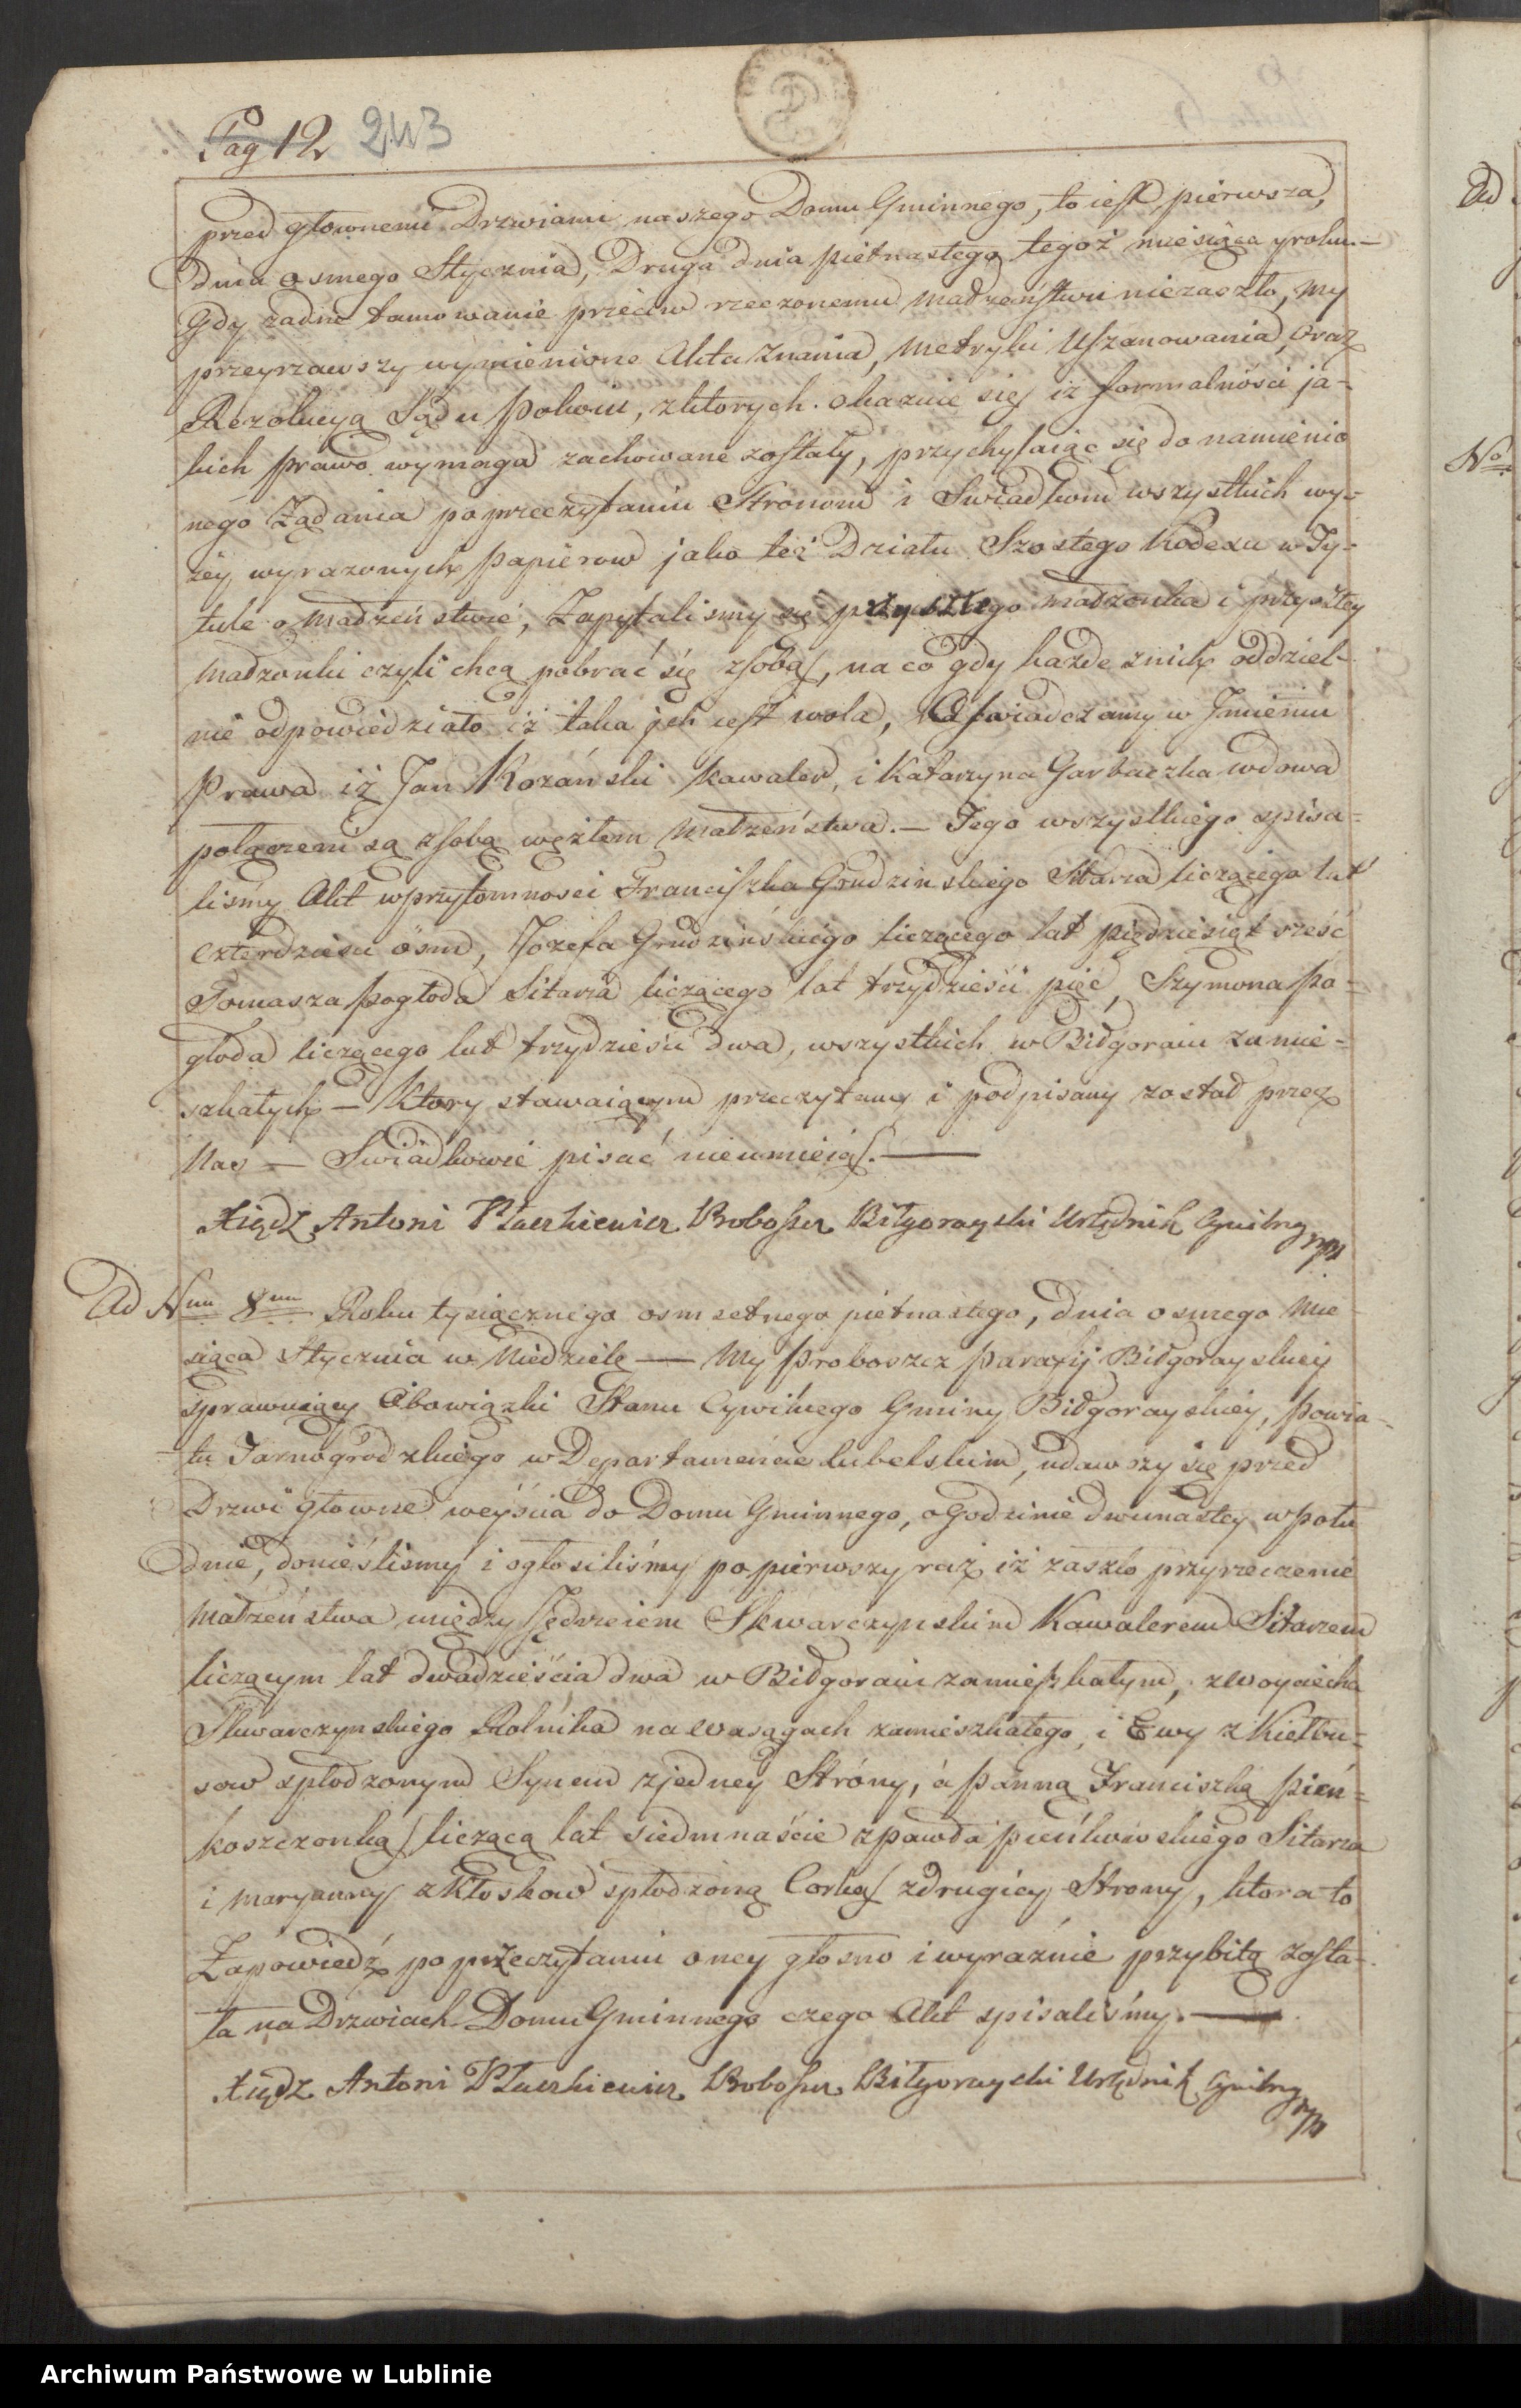 Pag 12 243
przed głownemi Drzwiami naszego Domu Gminnego, to iest pierwsza,
dnia osmego Stycznia, Druga dnia piętnastego tegoż miesiąca yroku.—
Gdy żadne tamowanie przeciw rzeczonemu Małżeństwu niezaszło, My
przeyrzawszy wymienione Akta Znania, Metryki Uszanowania, oraz
Rezolucyą Sądu Pokoiu, zktorych okazuie się iż formalności ja-
kich prawo wymaga zachowane zostały, przychylaiąc się do namienio
nego Żądania po przeczytaniu Stronom i Swiadkom wszystkich wy-
żey wyrażonych Papierow jako też Działu Szostego Kodexu w Ty-
tule o Małżeństwie, Zapytalismy się przyszłego małżonka i przyszłey
małżonki czyli chcą pobrać się zsobą, na co gdy każde znich oddziel-
nie odpowiedziało iż taka jch iest wola, Oswiadczamy w Jmieniu
Prawa iż Jan Rożański kawaler, i Katarzyna Garbaczka wdowa
połączeni są zsobą węzłem Małżeństwa.— Tego wszystkiego spisa-
liśmy Akt wprzytomności Franciszka Grudzinskiego Sitarza liczącego lat
czterdzieści ośm, Jozefa Grudzińskiego liczącego lat pięćdziesiąt sześć
Tomasza Pogłoda Sitarza liczącego lat trzydzieści pięć, Szymona Po-
głoda liczącego lat trzydzieści dwa, wszystkich w Biłgoraiu zamie-
szkałych — Ktory stawaiącym przeczytany i podpisany został przez
Nas — Swiadkowie pisać nieumieią.—
Xiądz Antoni Ptaszkiewicz Proboszcz Biłgorayski Urzędnik Cywilny mp
Ad Num 8um Roku tysiącznego osmsetnego pietnastego, dnia osmego Mie-
siąca Stycznia w Niedzielę — My Proboszcz Parafij Biłgorayskiey
sprawuiący Obowiązki Stanu Cywilnego Gminy Biłgorayskiey, Powia-
tu Tarnogrodzkiego w Departamencie Lubelskim, udawszy się przed
Drzwi głowne weyścia do Domu Gminnego, o Godzinie dwunastey wpołu
dnie, donieślismy i ogłosiliśmy po pierwszy raz, iż zaszło przyrzeczenie
Małżeństwa między Jędrzeiem Skwarczynskim Kawalerem Sitarzem
liczącym lat dwadzieścia dwa w Biłgoraiu zamieszkałym, zWoyciecha
Skwarczynskiego Rolnika na Wasągach zamieszkałego, i Ewy z Kiełbu-
sow spłodzonym Synem zjedney Stróny, á Panną Franciszką Pień-
koszczonką liczącą lat siedmnaście zPawła Pieńkowskiego Sitarza
i Maryanny zKłoskow spłodzoną Corką zdrugiey Strony, ktora to
Zapowiedź po przeczytaniu oney głosno i wyraźnie przybitą zosta-
ła na Drzwiach Domu Gminnego czego Akt spisaliśmy.—
Xiądz Antoni Ptaszkiewicz Proboszcz Biłgorayski Urzędnik Cywilny mp
Ad
No
Archiwum Państwowe w Lublinie